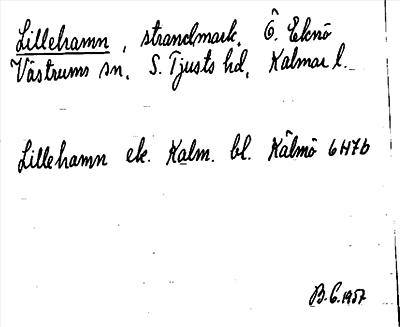 Lillehamn, strandmark, Ö. Eknö
Västrums sn, S. Tjusts hd, Kalmar l.
Lillehamn ek. Kalm. bl. Kälmö 6H7b
B.G.1957